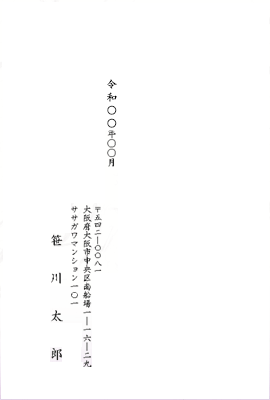 令和〇〇年〇〇月
〒五四二―〇〇八一
大阪府大阪市中央区南船場一―一六―二九
ササガワマンション一〇一
笹川太郎